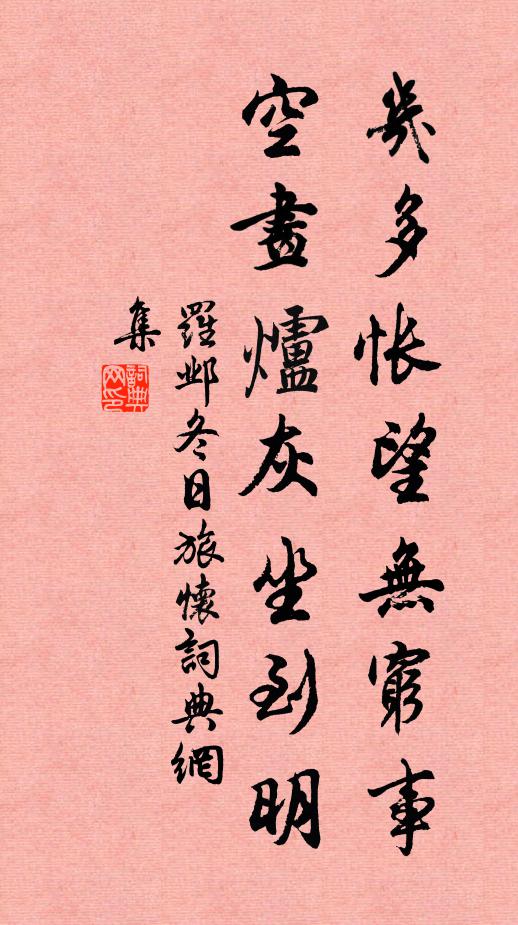 幾多悵望無窮事
空畫爐灰坐到明
羅鄴冬日旅懷詞典網
集
詞典
网印